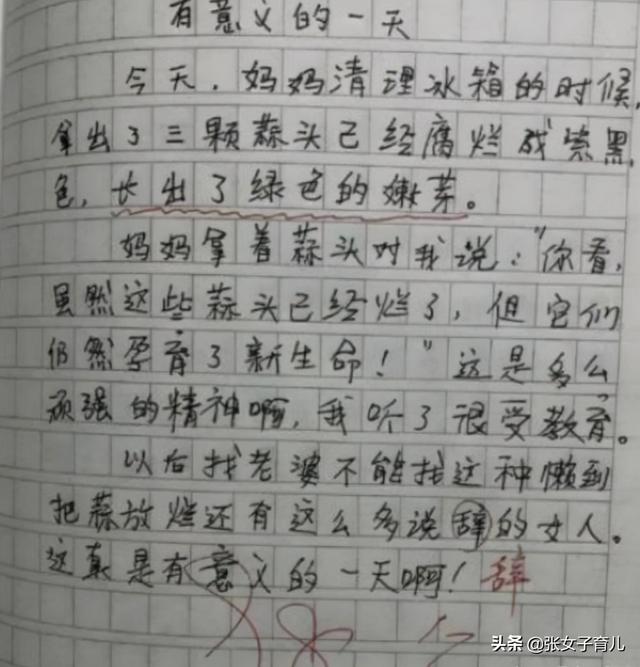 有意义的一天
今天,妈妈清理冰箱的时候,
拿出了三颗蒜头已经腐烂成紫黑
色,长出了绿色的嫩芽。
妈妈拿着蒜头对我说:“你看,
虽然这些蒜头已经烂了,但它们
仍然孕育了新生命!”这是多么
顽强的精神啊,我听了很受教育。
以后找老婆不能找这种懒到
把蒜放烂还有这么多说辞的女人。
这真是有意义的一天啊!辞
头条 @张女子育儿